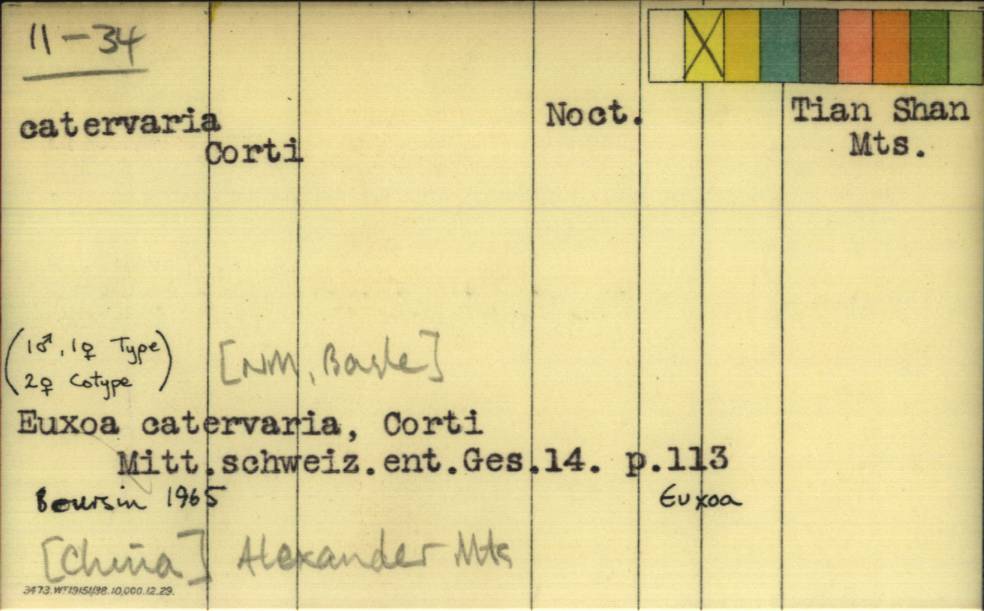 11-34
catervaria Noct. Tian Shan
Corti Mts.
(1♂, 1♀ Type
2♀ Cotype) [NM, Basle]
Euxoa catervaria, Corti
Mitt.schweiz.ent.Ges.14. p.113
Boursin 1965 Euxoa
[China] Alexander Mts
3473.WT19151/98.10,000.12.29.